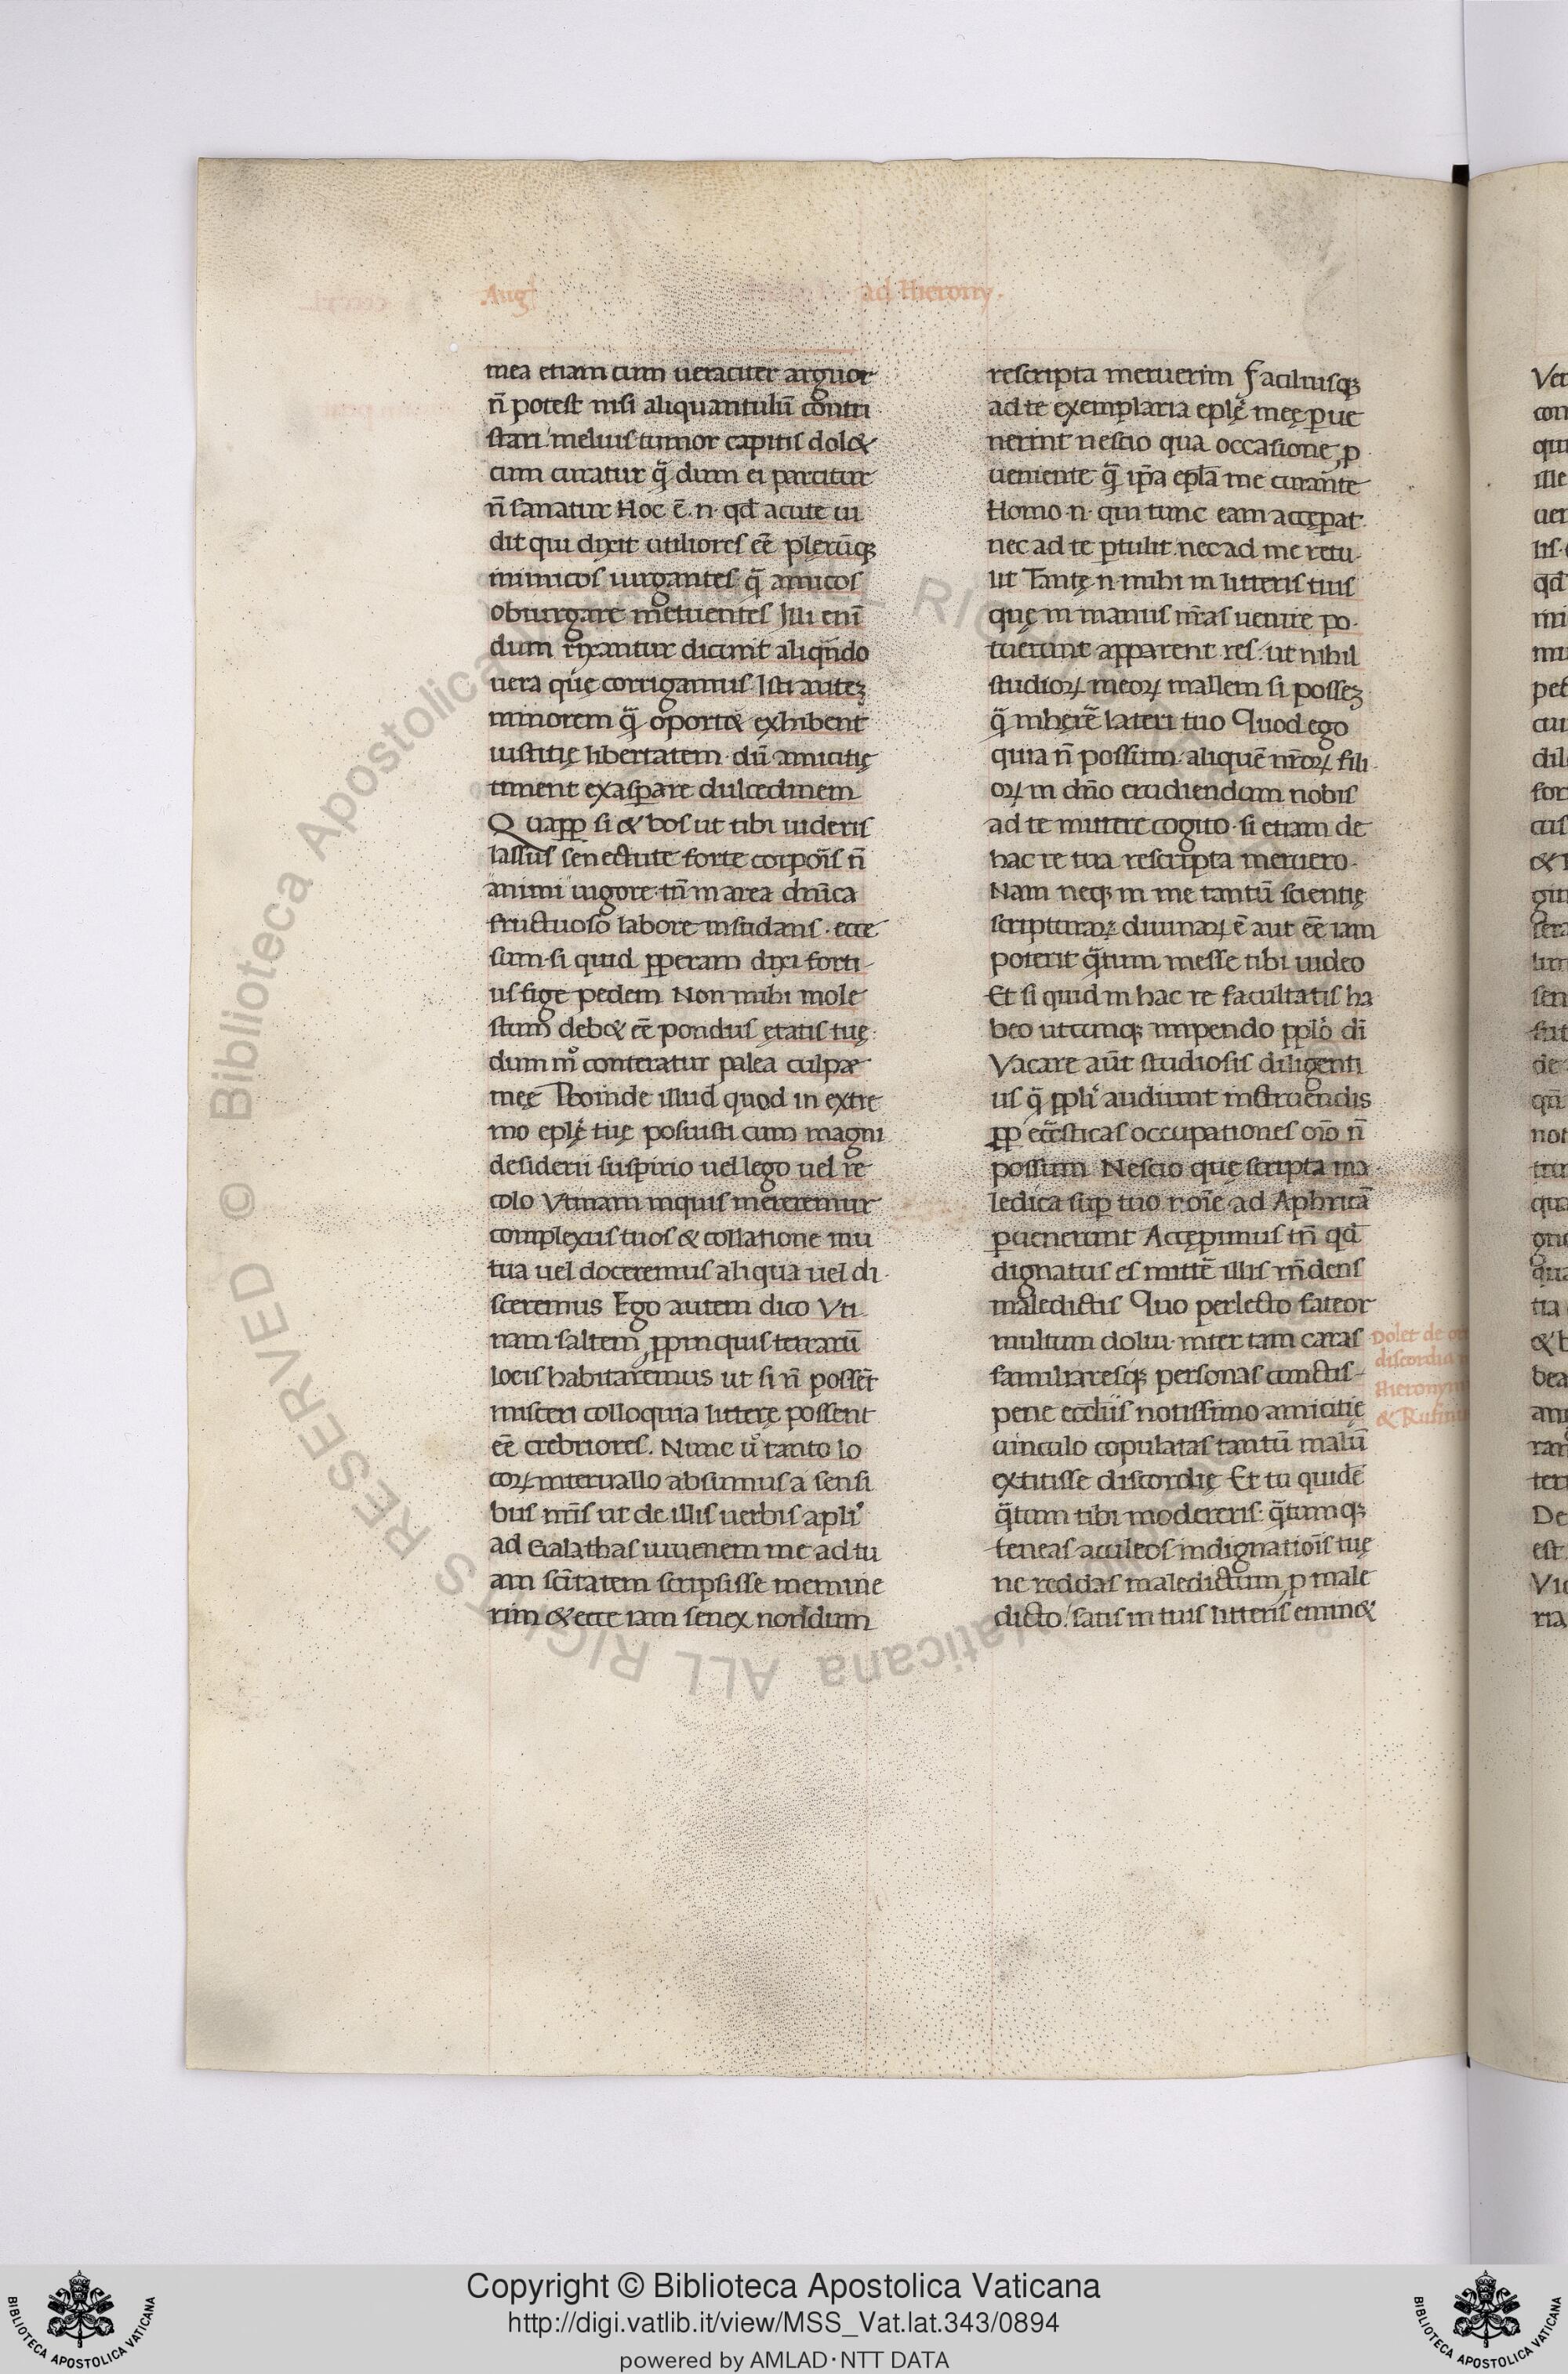 Aug ad Hierony.
mea etiam cum ueraciter arguor
n̄ potest nisi aliquantulū contri
stari. melius tumor capitis dol&
cum curatur q̄ dum ei parcitur
n̄ sanatur Hoc ē. n. qđ acute ui
dit qui dixit utiliores eē plerūq;
inimicos iurgantes q̄ amicos
obiurgare metuentes Illi enī
dum rixantur dicunt aliqn̄do
uera que corrigamus Isti autez
minorem q̄ oport& exhibent
iustitię libertatem. dū amicitię
timent exasꝑare dulcedinem
Quaꝓp si & bos ut tibi uideris
lassus senectute forte corporis n̄
animi uigore. tn̄ in area dn̄ica
fructuoso labore insudans. ecce
sum. si quid ꝓperam dixi forti
us fige pedem Non mihi mole
stum deb& eē pondus ętatis tuę.
dum mº conteratur palea culpæ
meę Proinde illud quod in extre
mo eplę tuę posuisti cum magni
desiderii suspirio uel lego uel re
colo Vtinam inquis mereremur
complexus tuos & collatione mu
tua uel doceremus aliqua uel di
sceremus Ego autem dico Vti
nam saltem ꝓpinquis terrarū
locis habitaremus ut si n̄ possēt
misceri colloquia litterę possent
eē crebriores. Nunc ů tanto lo
coꝝ interuallo absumus a sensi
bus nr̄is ut de illis uerbis apli
ad Galathas iuuenem me ad tu
am scītatem scripsisse memine
rim & ecce iam senex nondum
rescripta meruerim Faciliusq;
ad te exemplaria eplę meę ꝑue
nerint nescio qua occasione ꝓ
ueniente q̄ ip̄a epl̄a me curante
Homo n. qui tunc eam accęꝑat.
nec ad te ꝑtulit. nec ad me retu
lit Tantę n. mihi in litteris tuis
quę in manus nr̄as uenire po
tuerunt apparent res. ut nihil
studioꝝ meoꝝ mallem si possez
q̄ inhęrē lateri tuo Quod ego
quia n̄ possum. aliquē nr̄oꝝ fili
oꝝ in dn̄o erudiendum nobis
ad te mittere cogito. si etiam de
hac re tua rescripta meruero.
Nam neq; in me tantū scientię
scripturaꝝ diuinaꝝ ē aut eē iam
poterit q̄tum inesse tibi uideo
Et si quid in hac re facultatis ha
beo utcunq; inpendo ppl̄o dī
Vacare aūt studiosis diligenti
us q̄ ppl̄i audiunt instruendis
ꝓp ecc̄sticas occupationes oīo n̄
possum Nescio quę scripta ma
ledica suꝑ tuo noīe ad Aphricā
ꝑuenerunt Accępimus tn̄ qđ
dignatus es mittē illis rn̄dens
maledictis Quo perlecto fateor
multum dolui. inter tam caras
familiaresq; personas cunctis
pene eccl̄iis notissimo amicitię
uinculo copulatas tantū malū
extitisse discordię Et tu quidē
q̄tum tibi modereris. q̄tumq;
teneas aculeos indignatiois tuę
ne reddas maledictum ꝓ male
dicto. satis in tuis litteris emin&
Dolet de
discordia
Hierony
& Rufin
Copyright © Biblioteca Apostolica Vaticana
http://digi.vatlib.it/view/MSS_Vat.lat.343/0894
powered by AMLAD·NTT DATA
BIBLIOTECA APOSTOLICA VATICANA
BIBLIOTECA APOSTOLICA VATICANA
© Biblioteca Apostolica Vaticana ALL RIGHTS RESERVED